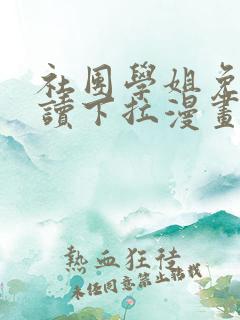 社團學姐免
讀下拉漫畫
熱血狂徒
未經同意禁止轉載